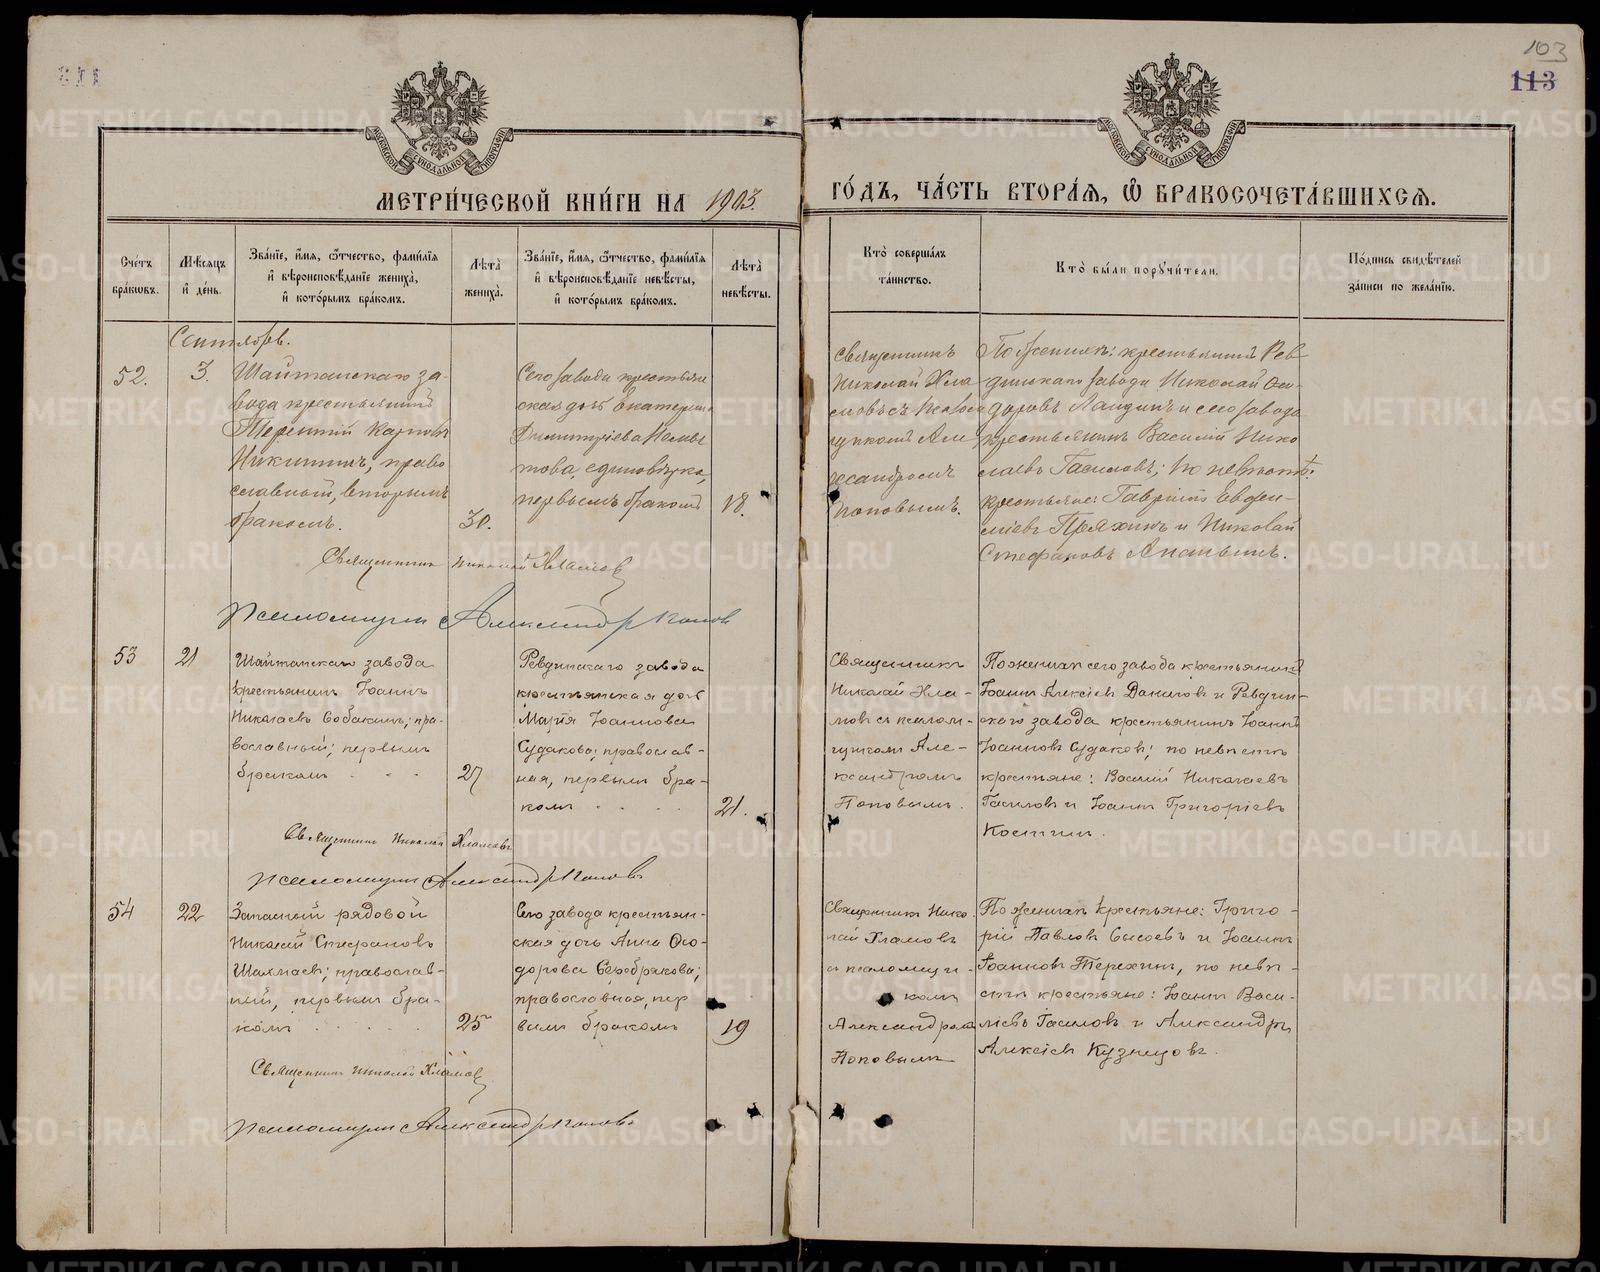 103
113
МЕТРИ́ЧЕСКОЙ КНИ́ГИ НА 1903.
ГО́ДЪ, ЧА́СТЬ ВТОРА́Я, Ѿ БРАКОСОЧЕТА́ВШИХСЯ.
Сче́тъ бра́кѡвъ.
Мѣ́сяцъ и҆ де́нь.
Зва́нїе, и҆́мя, ѻ҆́тчество, фами́лїя
и҆ вѣроисповѣ́данїе жениха̀,
и҆ кото́рымъ бра́комъ.
Лѣ́та жениха̀.
Зва́нїе, и҆́мя, ѻ҆́тчество, фами́лїя
и҆ вѣроисповѣ́данїе невѣ́сты,
и҆ кото́рымъ бра́комъ.
Лѣ́та невѣ́сты.
Кто̀ соверша́лъ
та́инство.
Кто̀ бы́ли порꙋчи́тели.
По́дпись свидѣ́телей
за́писи по жела́нїю.
Сентябрь.
52.
3.
Шайтанскаго за-
вода крестьянинъ
Терентий Карповъ
Никитинъ, право
славный, вторымъ
бракомъ.
30.
Сего завода крестьян
ская дочь Екатерина
Димитріева
единовѣрка,
первымъ бракомъ
18.
Священникъ
Николай Хла
мовъ съ псалом
щикомъ Але
ксандромъ
Поповымъ.
По женихѣ: крестьянинъ Рев
динскаго завода Николай Ѳео-
доровъ и сего завода
крестьянинъ Василій Нико
лаевъ Гасиловъ; по невѣстѣ:
крестьяне: Гавріилъ Евфи-
міевъ Пряхинъ и Николай
Стефановъ Ананьинъ.
Священникъ Николай Хламовъ
Псаломщикъ Александръ Поповъ
53
21
Шайтанскаго завода
крестьянинъ Іоаннъ
Николаевъ Собакинъ; пра-
вославный; первымъ
бракомъ . . .
27
Ревдинскаго завода
крестьянская дочь
Марія Іоаннова
Судакова; православ-
ная, первымъ бра-
комъ . . . .
21.
Священникъ
Николай Хла-
мовъ съ псалом-
щикомъ Але-
ксандромъ
Поповымъ.
По женихѣ сего завода крестьянинъ
Іоаннъ Алексіевъ Даниловъ и Ревдин-
скаго завода крестьянинъ Іоаннъ
Іоанновъ Судаковъ; по невѣстѣ
крестьяне: Василій Николаевъ
Гасиловъ и Іоаннъ Григоріевъ
Костинъ.
Священникъ Николай Хламовъ
Псаломщикъ Александръ Поповъ
54
22
Запасный рядовой
Николай Стефановъ
православ-
ный, первымъ бра-
комъ . . . . .
25
Сего завода крестьян-
ская дочь Анна Ѳео-
дорова Серебрякова;
православная, пер
вымъ бракомъ
19
Священникъ Нико
лай Хламовъ
съ псаломщи-
комъ
Александромъ
Поповымъ
По женихѣ крестьяне: Григо-
рій Павловъ Сысоевъ и Іоаннъ
Іоанновъ Терехинъ, по невѣ-
стѣ крестьяне: Іоаннъ Васи-
ліевъ Гасиловъ и Александръ
Алексіевъ Кузнецовъ.
Священникъ Николай Хламовъ
Псаломщикъ Александръ Поповъ
METRIKI.GASO-URAL.RU